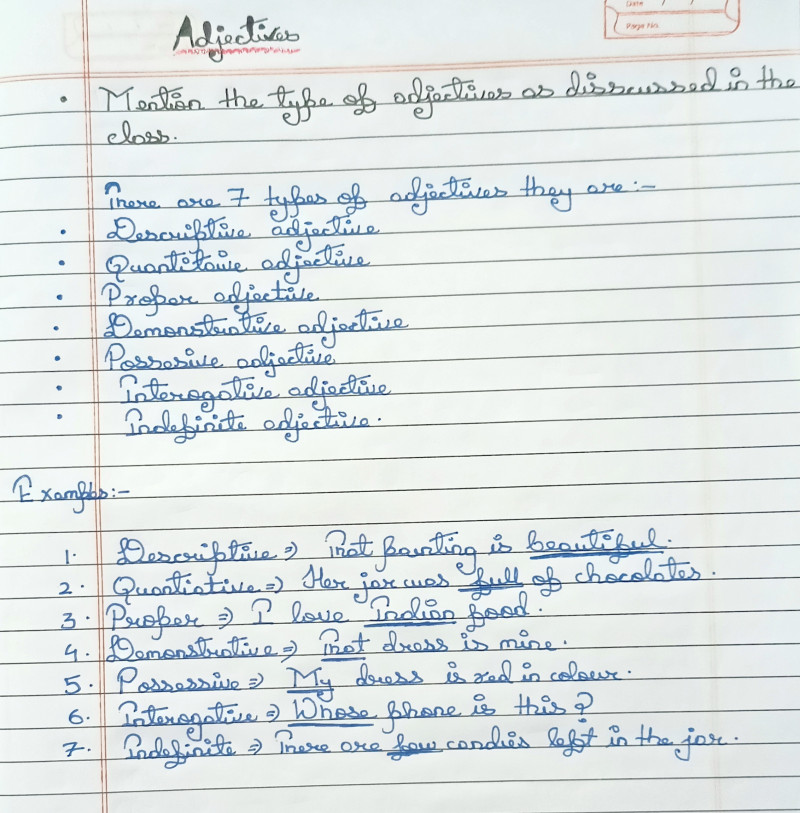 Date
Page No.
Adjectives
• Mention the type of adjectives as disscussed in the
class.
There are 7 types of adjectives they are:-
• Descriptive adjective
• Quantitaive adjective
• Proper adjective
• Demonstrative adjective
• Possesive adjective
• Interogative adjective
• Indefinite adjective.
Examples:-
1. Descriptive ⇒ That painting is beautiful.
2. Quantiative ⇒ Her jar was full of chocolates.
3. Proper ⇒ I love Indian food.
4. Demonstrative ⇒ That dress is mine.
5. Possessive ⇒ My dress is red in colour.
6. Interogative ⇒ Whose phone is this?
7. Indefinite ⇒ There are few candies left in the jar.